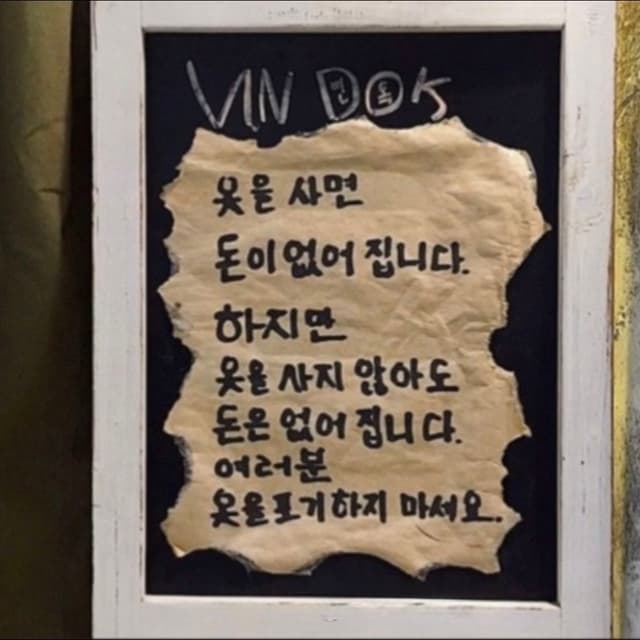 VIN DOK
옷을 사면
돈이 없어 집니다.
하지만
옷을 사지 않아도
돈은 없어 집니다.
여러분
옷을 포기하지 마세요.